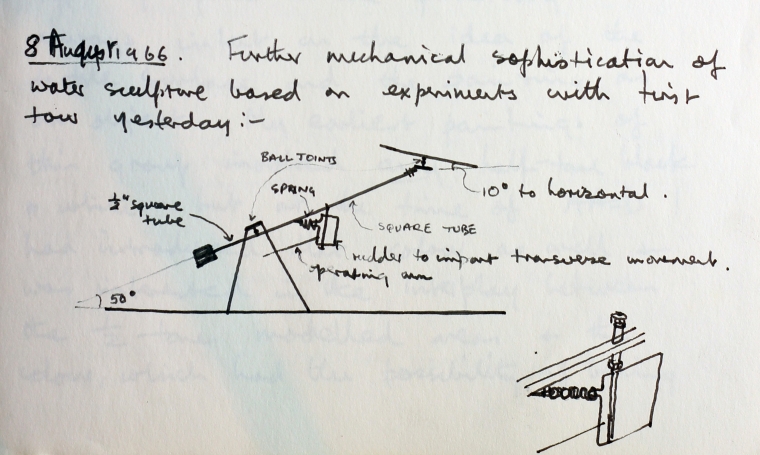 8 August 1966. Further mechanical sophistication of
water sculpture based on experiments with first
four yesterday:-
BALL JOINTS
10° to horizontal.
SPRING
½" square
tube
SQUARE TUBE
rudder to impart transverse movement.
operating arm
50°